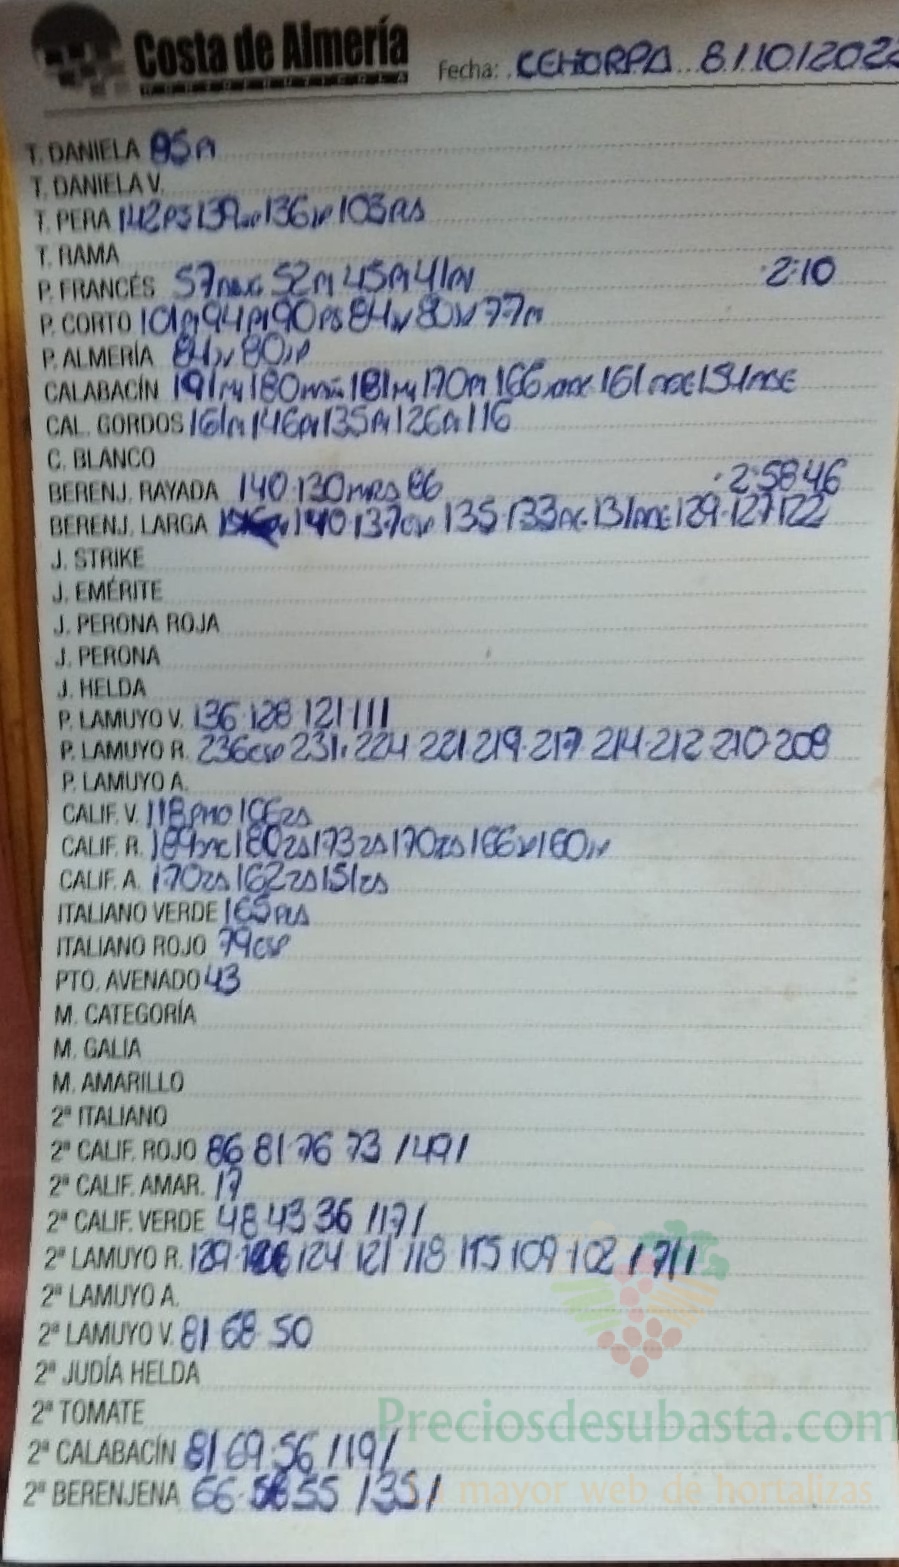 Costa de Almería
HORTOFRUTICOLA
Fecha: CEHORPA 8/10/2022
T. DANIELA 85 PI
T. DANIELA V.
T. PERA 142PS 139 136 103PLS
T. RAMA
P. FRANCÉS 57 52PI 45PI 41PI 2:10
P. CORTO 101PI 94PI 90PS 84 80 77PI
P. ALMERÍA 84 80
CALABACÍN 191 180 181 170PI 166 161 154
CAL. GORDOS 161PI 146PI 135PI 126PI 116
C. BLANCO
BERENJ. RAYADA 140·130MRS 86 2:58:46
BERENJ. LARGA 140·137CSP 135·133 131 129·127 122
J. STRIKE
J. EMÉRITE
J. PERONA ROJA
J. PERONA
J. HELDA
P. LAMUYO V. 136·128·121·111
P. LAMUYO R. 236CSP 231·224·221·219·217·214·212·210·208
P. LAMUYO A.
CALIF. V. 118PMO 106ZS
CALIF. R. 184 180ZS 173ZS 170ZS 166 160
CALIF. A. 170ZS 162ZS 151ZS
ITALIANO VERDE 165PLS
ITALIANO ROJO 79CSP
PTO. AVENADO 43
M. CATEGORÍA
M. GALIA
M. AMARILLO
2ª ITALIANO
2ª CALIF. ROJO 86 81·76 73 /49/
2ª CALIF. AMAR. 17
2ª CALIF. VERDE 48 43 36 /17/
2ª LAMUYO R. 129·126 124 121 118 115 109·102 /71/
2ª LAMUYO A.
2ª LAMUYO V. 81 68·50
2ª JUDÍA HELDA
2ª TOMATE
Preciosdesubasta.com
2ª CALABACÍN 81 69·56 /19/
2ª BERENJENA 66·58 55 /35/
La mayor web de hortalizas